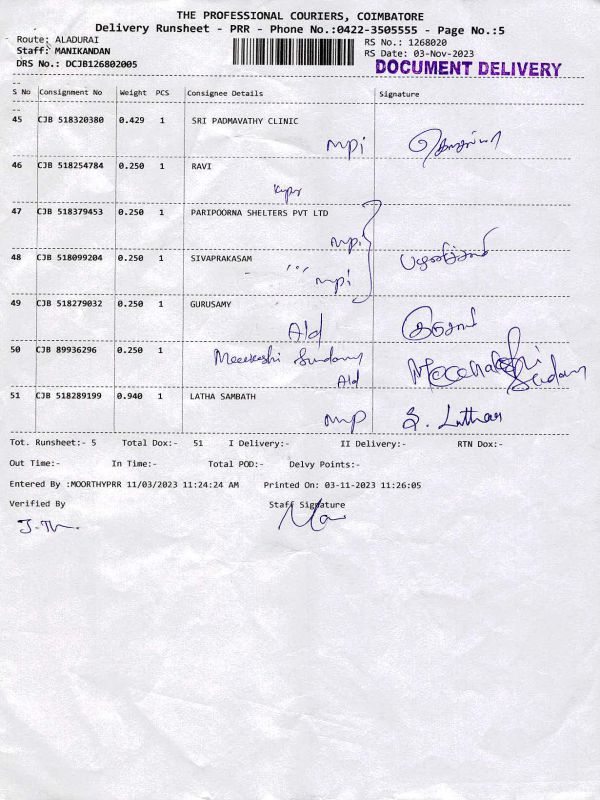 THE PROFESSIONAL COURIERS, COIMBATORE
Delivery Runsheet - PRR - Phone No.:0422-3505555 - Page No.:5
Route: ALADURAI RS No.: 1268020
Staff: MANIKANDAN RS Date: 03-Nov-2023
DRS No.: DCJB126802005 DOCUMENT DELIVERY
S No Consignment No Weight PCS Consignee Details Signature
45 CJB 518320380 0.429 1 SRI PADMAVATHY CLINIC
mpi
46 CJB 518254784 0.250 1 RAVI
47 CJB 518379453 0.250 1 PARIPOORNA SHELTERS PVT LTD
mpi
48 CJB 518099204 0.250 1 SIVAPRAKASAM
mpi
49 CJB 518279032 0.250 1 GURUSAMY
Ald
50 CJB 89936296 0.250 1 Meenakshi Sundaram
Ald
51 CJB 518289199 0.940 1 LATHA SAMBATH
mp
Tot. Runsheet:- 5 Total Dox:- 51 I Delivery:- II Delivery:- RTN Dox:-
Out Time:- In Time:- Total POD:- Delvy Points:-
Entered By :MOORTHYPRR 11/03/2023 11:24:24 AM Printed On: 03-11-2023 11:26:05
Verified By Staff Signature